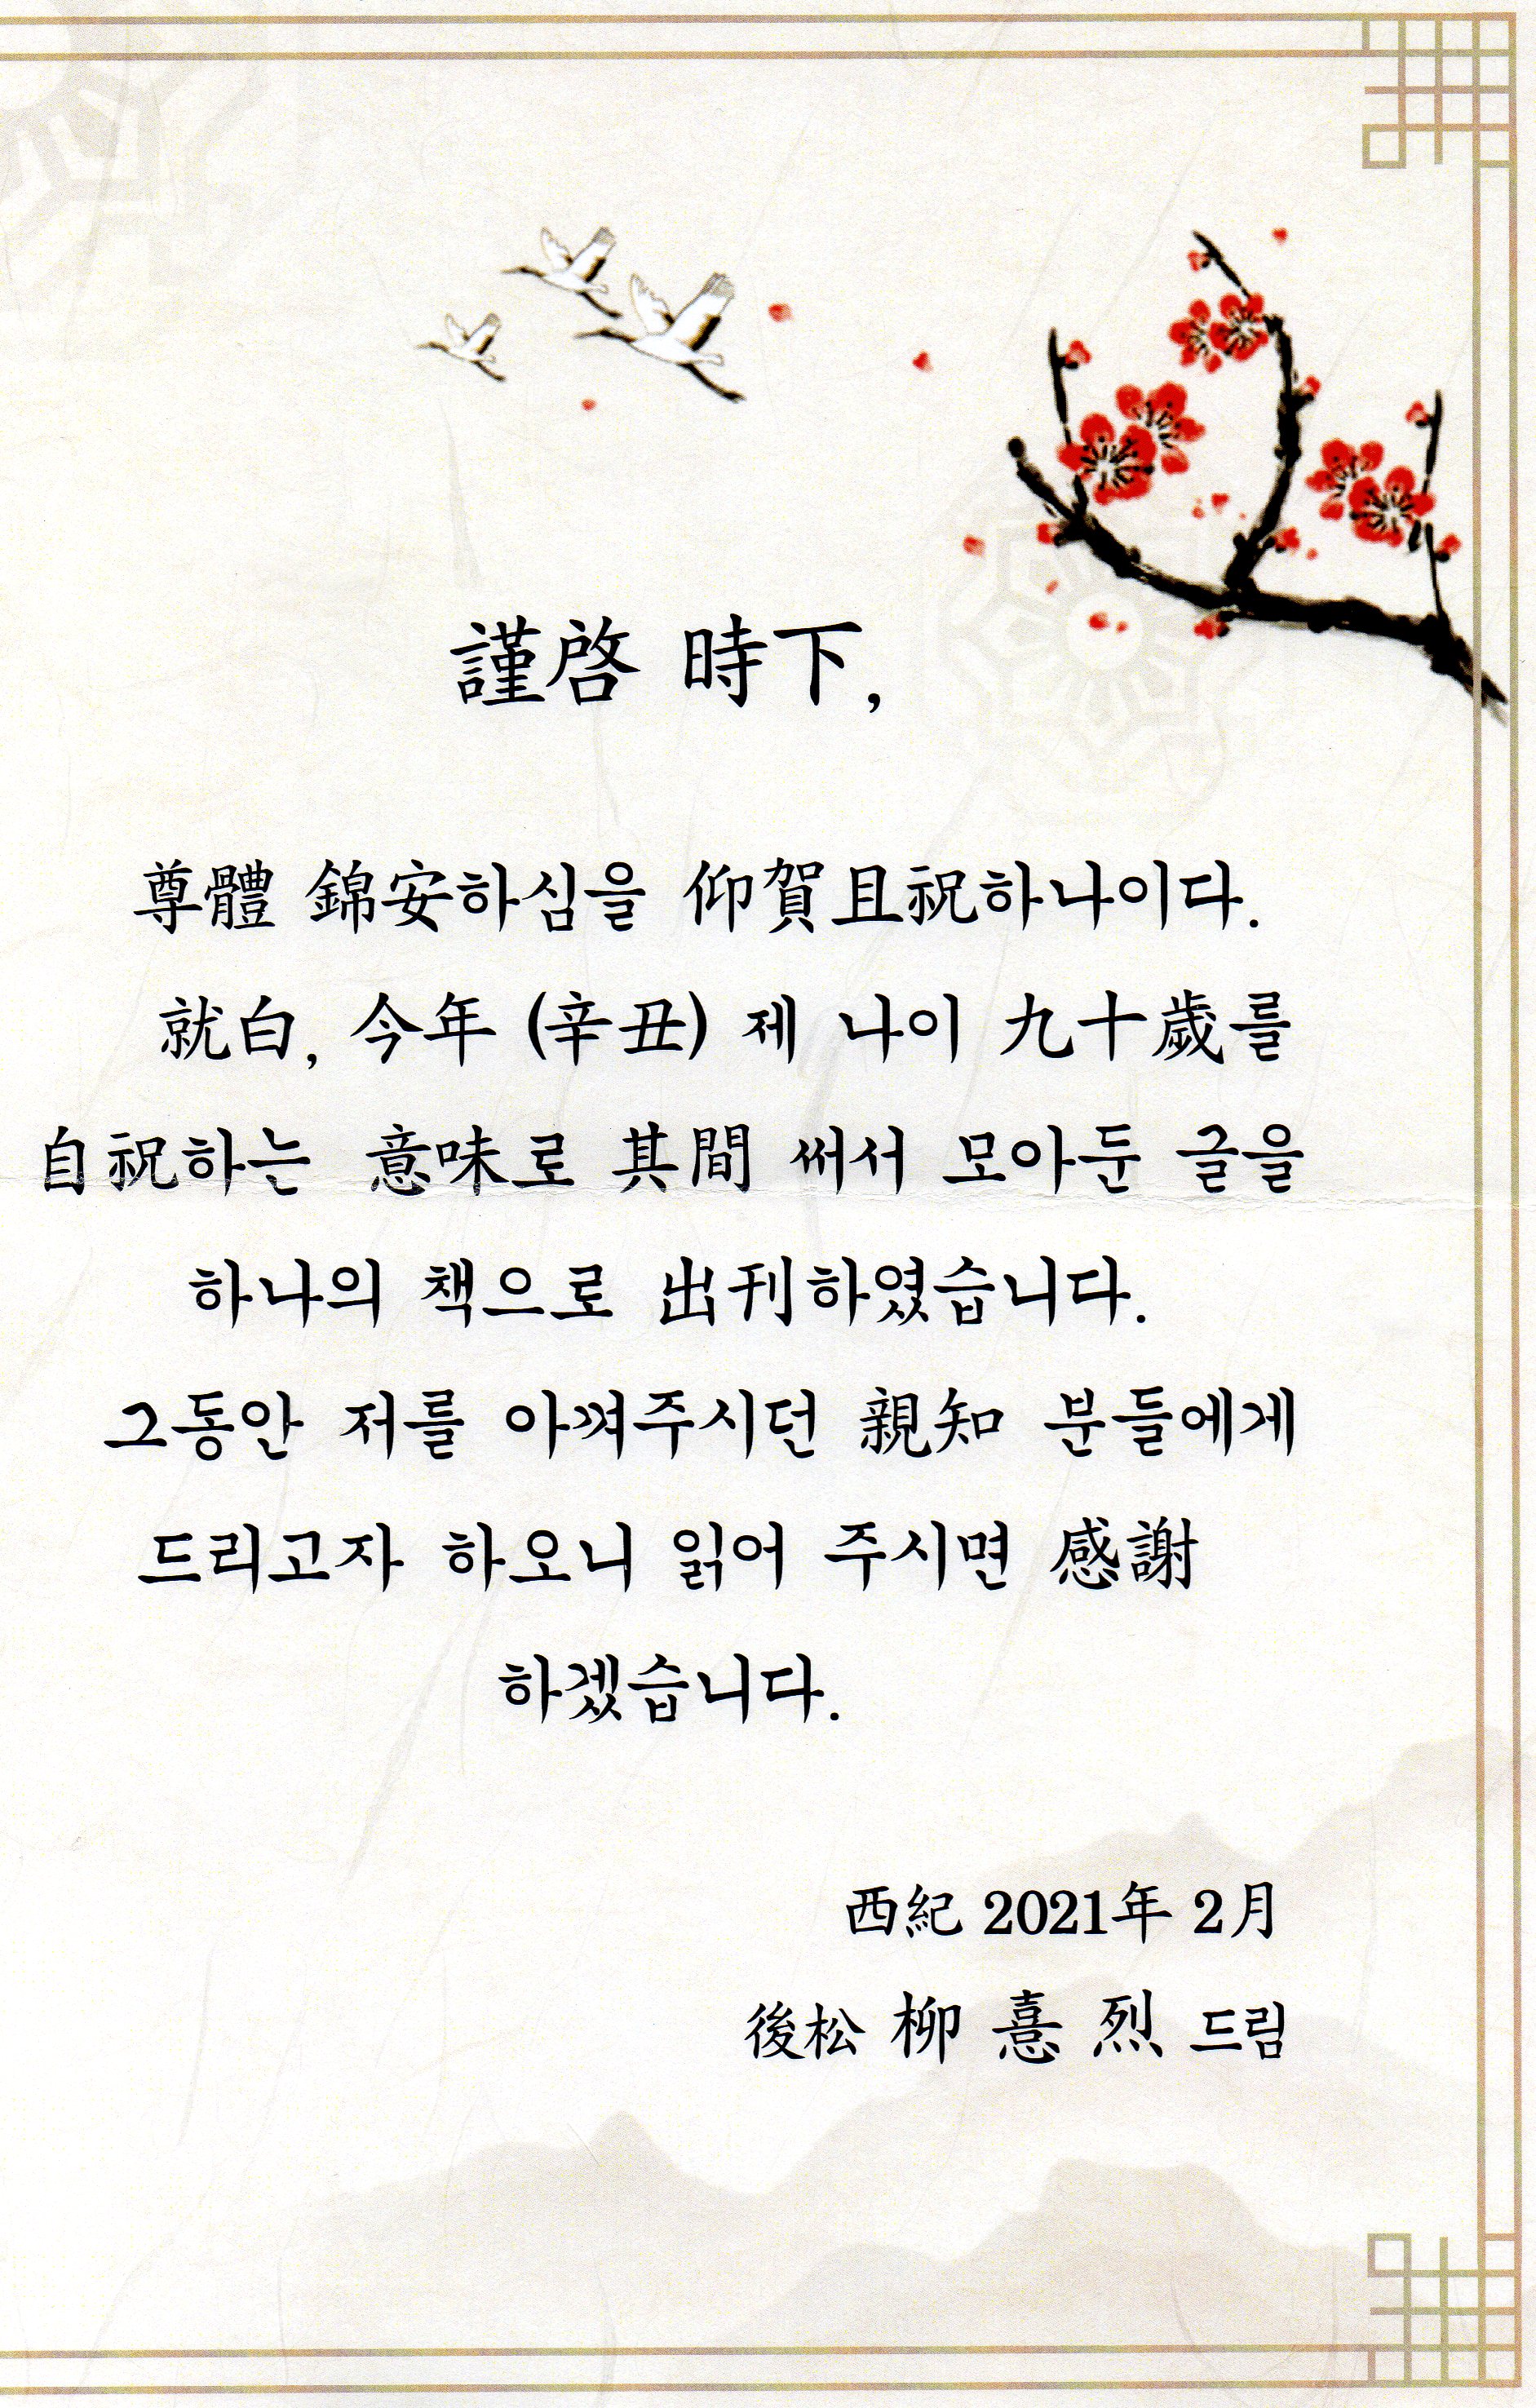 謹啓 時下,
尊體 錦安하심을 仰賀且祝하나이다.
就白, 今年 (辛丑) 제 나이 九十歲를
自祝하는 意味로 其間 써서 모아둔 글을
하나의 책으로 出刊하였습니다.
그동안 저를 아껴주시던 親知 분들에게
드리고자 하오니 읽어 주시면 感謝
하겠습니다.
西紀 2021年 2月
後松 柳 憙 烈 드림